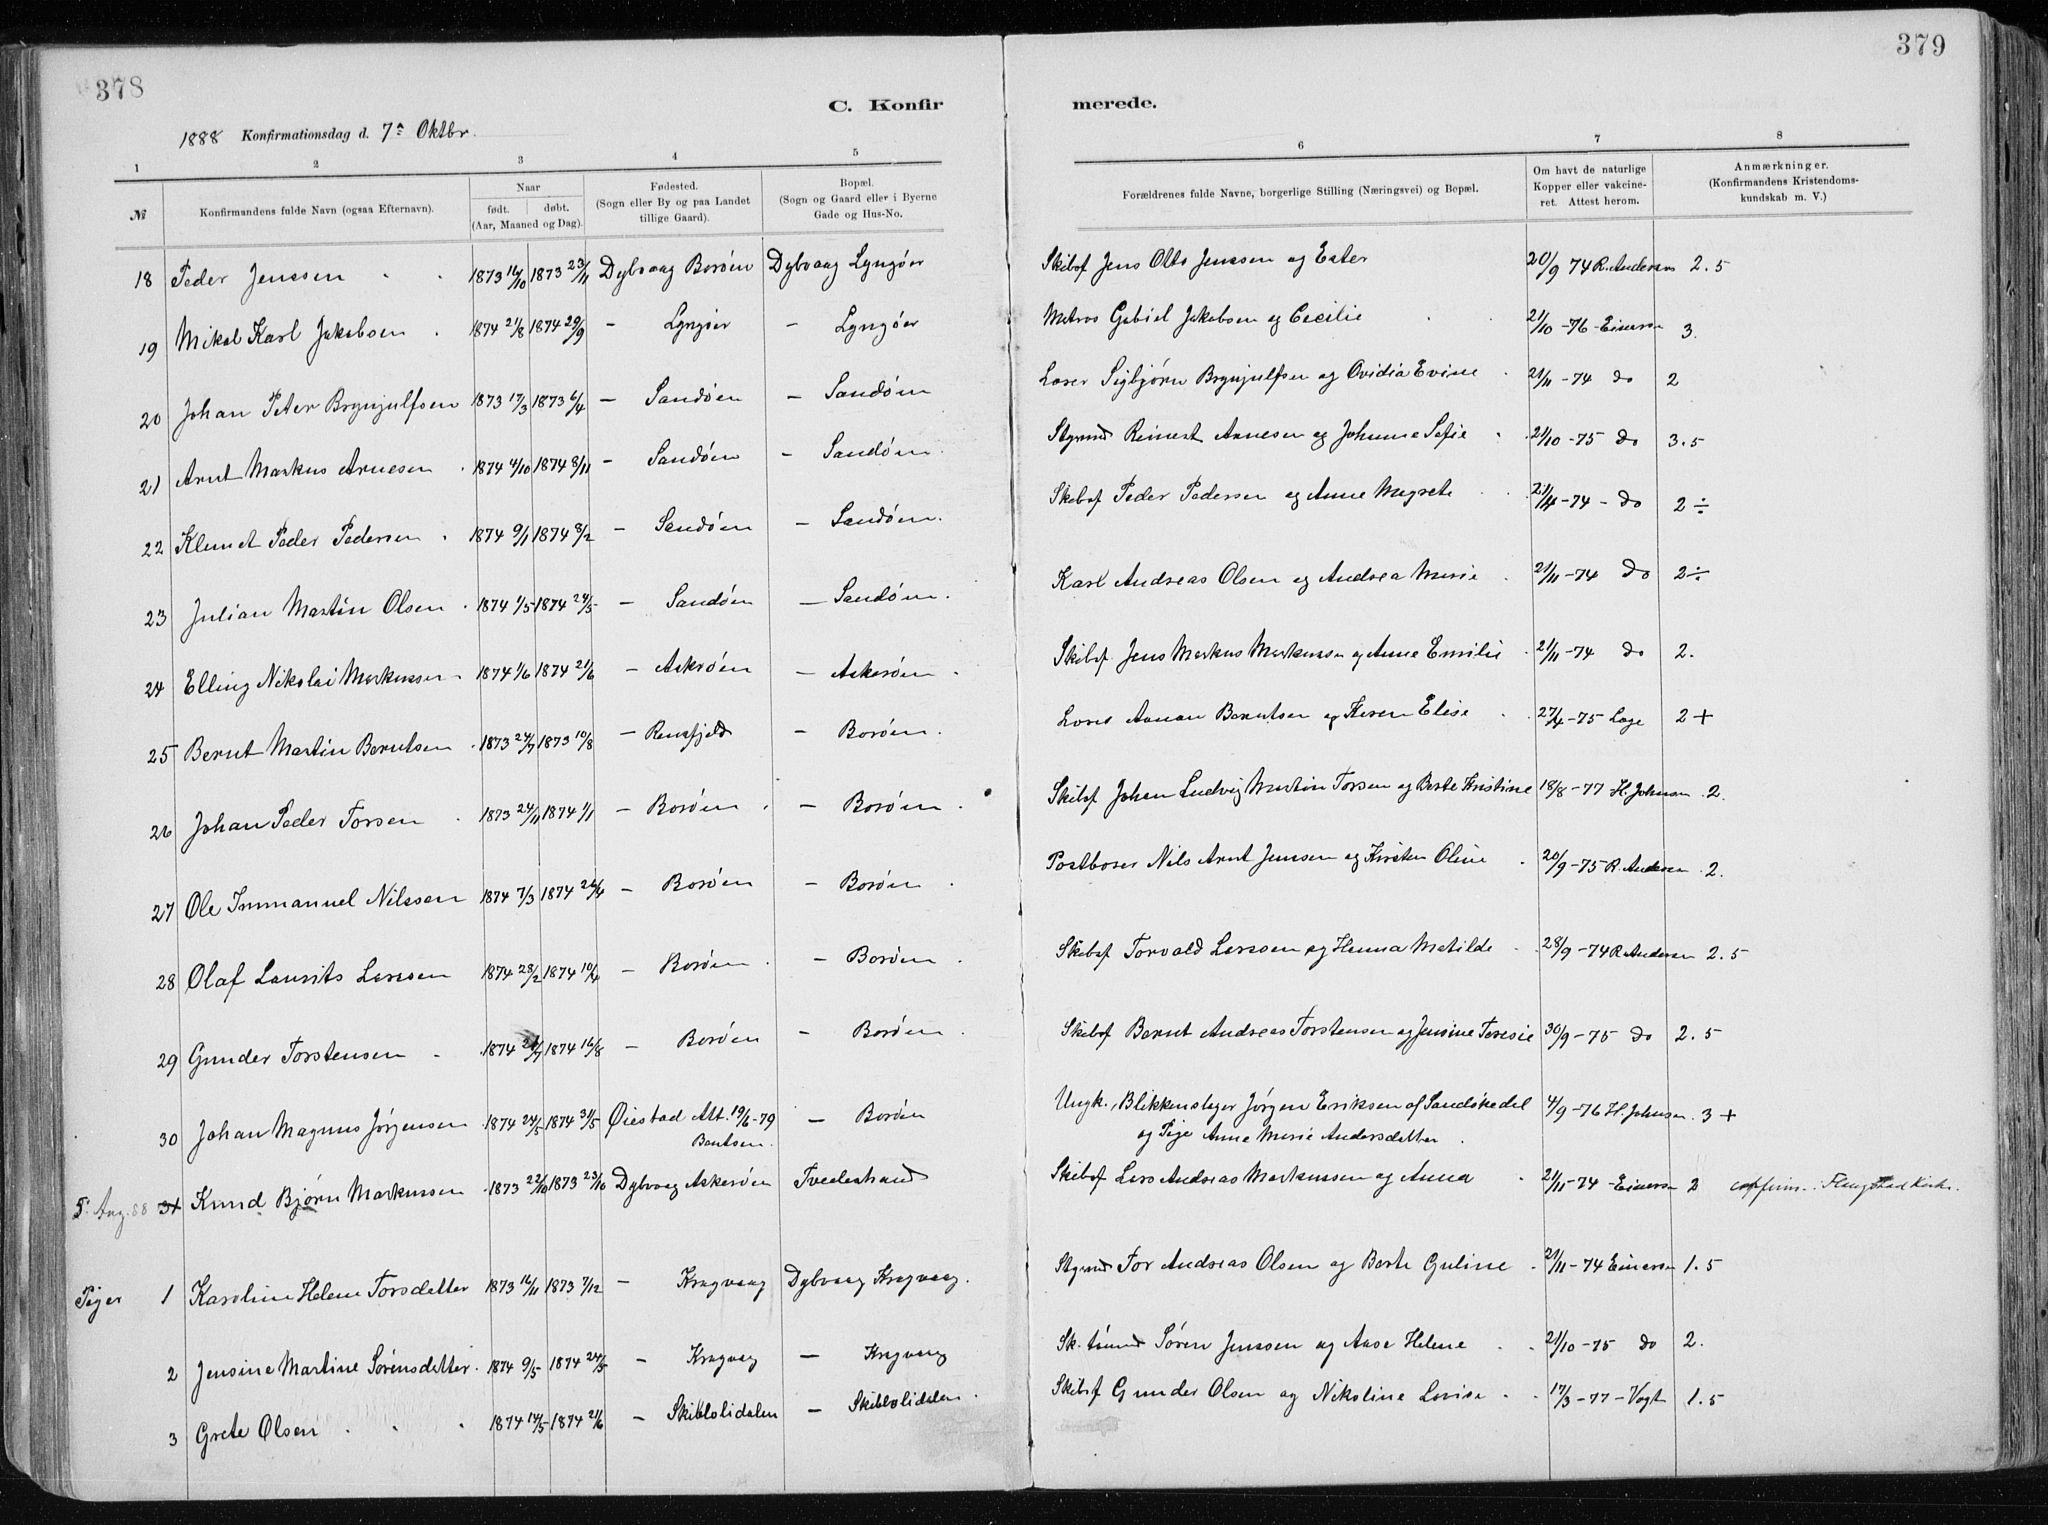 378
379
C. Konfir
merede.
1888 Konfirmationsdag d. 7de Oktbr.
1 2 3 4 5 6 7 8
№ Konfirmandens fulde Navn (ogsaa Efternavn). Naar født. døbt. (Aar, Maaned og Dag). Fødested. (Sogn eller By og paa Landet tillige Gaard). Bopæl. (Sogn og Gaard eller i Byerne Gade og Hus-No. Forældrenes fulde Navne, borgerlige Stilling (Næringsvei) og Bopæl. Om havt de naturlige Kopper eller vakcineret. Attest herom. Anmærkninger. (Konfirmandens Kristendomskundskab m. V.)
18 Peder Jenssen 1873 16/10 1873 23/11 Dybvaag Borøen Dybvaag Lyngøer Skibsf Jens Olts Jenssen og Ester 20/9 74 R. Andersen 2.5
19 Mikal Karl Jakobsen 1874 21/8 1874 29/9 - Lyngøer - Lyngøer Matros Gabiel Jakobsen og Cecilie 21/10 -76 - Einersen 3.
20 Johan Peter Brynjulfsen 1873 17/3 1873 6/4 - Sandøen - Sandøen Loser Sigbjørn Brynjulfsen og Ovidia Evine 21/11 -74 do 2
21 Arnt Markus Arnesen 1874 4/10 1874 8/11 - Sandøen - Sandøen Styrmd Reinert Arnesen og Johanne Sofie 21/10 -75 do 3.5
22 Klemet Peder Pedersen 1874 9/1 1874 8/2 - Sandøen - Sandøen. Skibsf Peder Pedersen og Anne Magrete 21/11 -74 - do 2 ÷
23 Julian Martin Olsen 1874 1/5 1874 24/5 - Sandøen - Sandøen. Karl Andreas Olsen og Andrea Marie 21/11 -74 do 2 ÷
24 Elling Nikolai Markussen 1874 1/6 1874 21/6 - Askrøen - Askerøen Skibsf. Jens Markus Markussen og Anne Emilie 21/11 -74 do 2.
25 Bernt Martin Berntsen 1873 24/7 1873 10/8 - Rensfjeld - Borøen. Lods Aanon Berntsen og Karen Elise 27/4 -75 Lage 2 +
26 Johan Peder Torsen 1873 24/11 1874 1/1 - Borøen - Borøen Skibsf Johan Ludvig Martin Torsen og Berte Kristine 18/8 -77 H. Johnsen 2.
27 Ole Immanuel Nilssen 1874 7/3 1874 26/4 - Borøen - Borøen Postboser Nils Arnt Jenssen og Kirsten Oline 20/9 -75 R. Andersen 2.
28 Olaf Laurits Larssen 1874 28/2 1874 10/4 - Borøen - Borøen Skibsf Torvald Larssen og Hanna Matilde 28/9 -74 R. Andersen 2.5
29 Gunder Torstensen 1874 1874 16/8 - Borøen - Borøen Skibsf Bernt Andreas Torstensen og Jensine Teresie 30/9 -75 do 2.5
30 Johan Magnus Jørgensen 1874 24/5 1874 31/5 Øiestad Att. 19/6 -79 - Borøen Ungk., Blikkenslager Jørgen Eriksen af Sandøkedal 4/9 -76 H. Johnsen 3 +
Bentsen. og Pige Anne Marie Andersdatter.
5. Aug. 88 31 Knud Bjørn Markussen 1873 22/10 1873 23/10 Dybvaag Askerøen Tvedestrand Skibsf Lars Andreas Markussen og Anna 21/11 -74 - Einersen 2
Piger 1 Karoline Helene Torsdatter 1873 16/11 1873 7/12 - Kragvaag Dybvaag Kragvaag. Styrmd Tor Andreas Olsen og Berte Guline 21/11 -74 Einersen 1.5
2 Jensine Martine Sørensdatter 1874 9/5 1874 24/5 - Kragvaag - Kragvaag Sk. tømmd Søren Jenssen og Aase Helene 21/10 -75 do 2.
3 Grete Olsen 1874 14/5 1874 21/6 - Skiblolidalen - Skiblolidalen Skibsf Gunder Olsen og Nikoline Lovise 17/3 -77 - Vogt 1.5